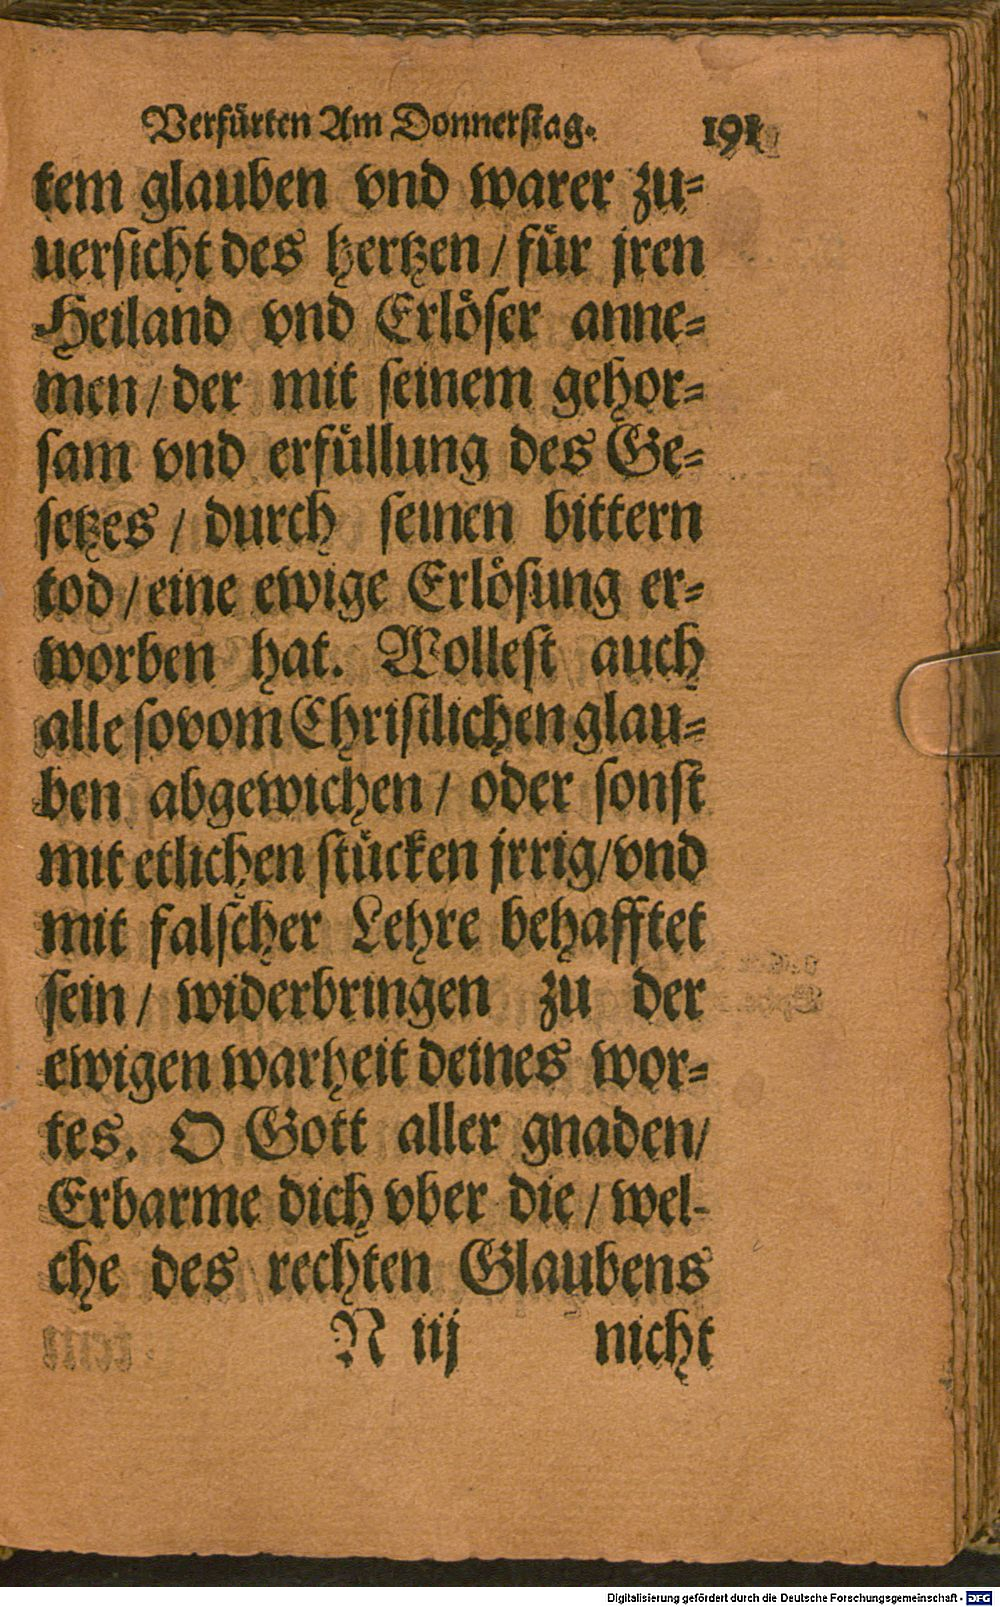 Verfürten Am Donnerstag. 191
tem glauben vnd warer zu⸗
uersicht des hertzen / für jren
Heiland vnd Erlöser anne⸗
men / der mit seinem gehor⸗
sam vnd erfüllung des Ge⸗
setzes / durch seinen bittern
tod / eine ewige Erlösung er⸗
worben hat. Wollest auch
alle so vom Christlichen glau⸗
ben abgewichen / oder sonst
mit etlichen stücken jrrig / vnd
mit falscher Lehre behafftet
sein / widerbringen zu der
ewigen warheit deines wor⸗
tes. O Gott aller gnaden /
Erbarme dich vber die / wel-
che des rechten Glaubens
N iij nicht
Digitalisierung gefördert durch die Deutsche Forschungsgemeinschaft - DFG